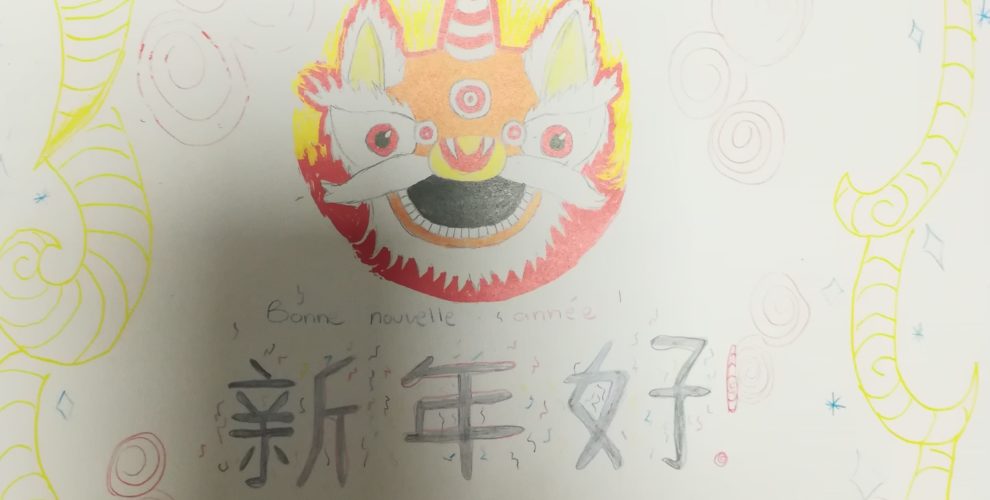 Bonne nouvelle année !
新年好!